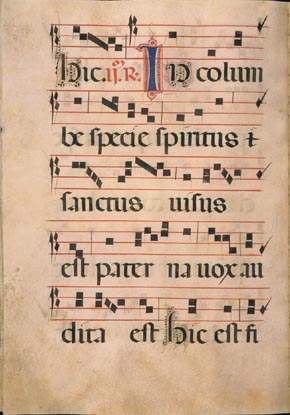 hic. ij. R. IN colum
be specie spiritus +
sanctus uisus
est pater na uox au
dita est hic est fi